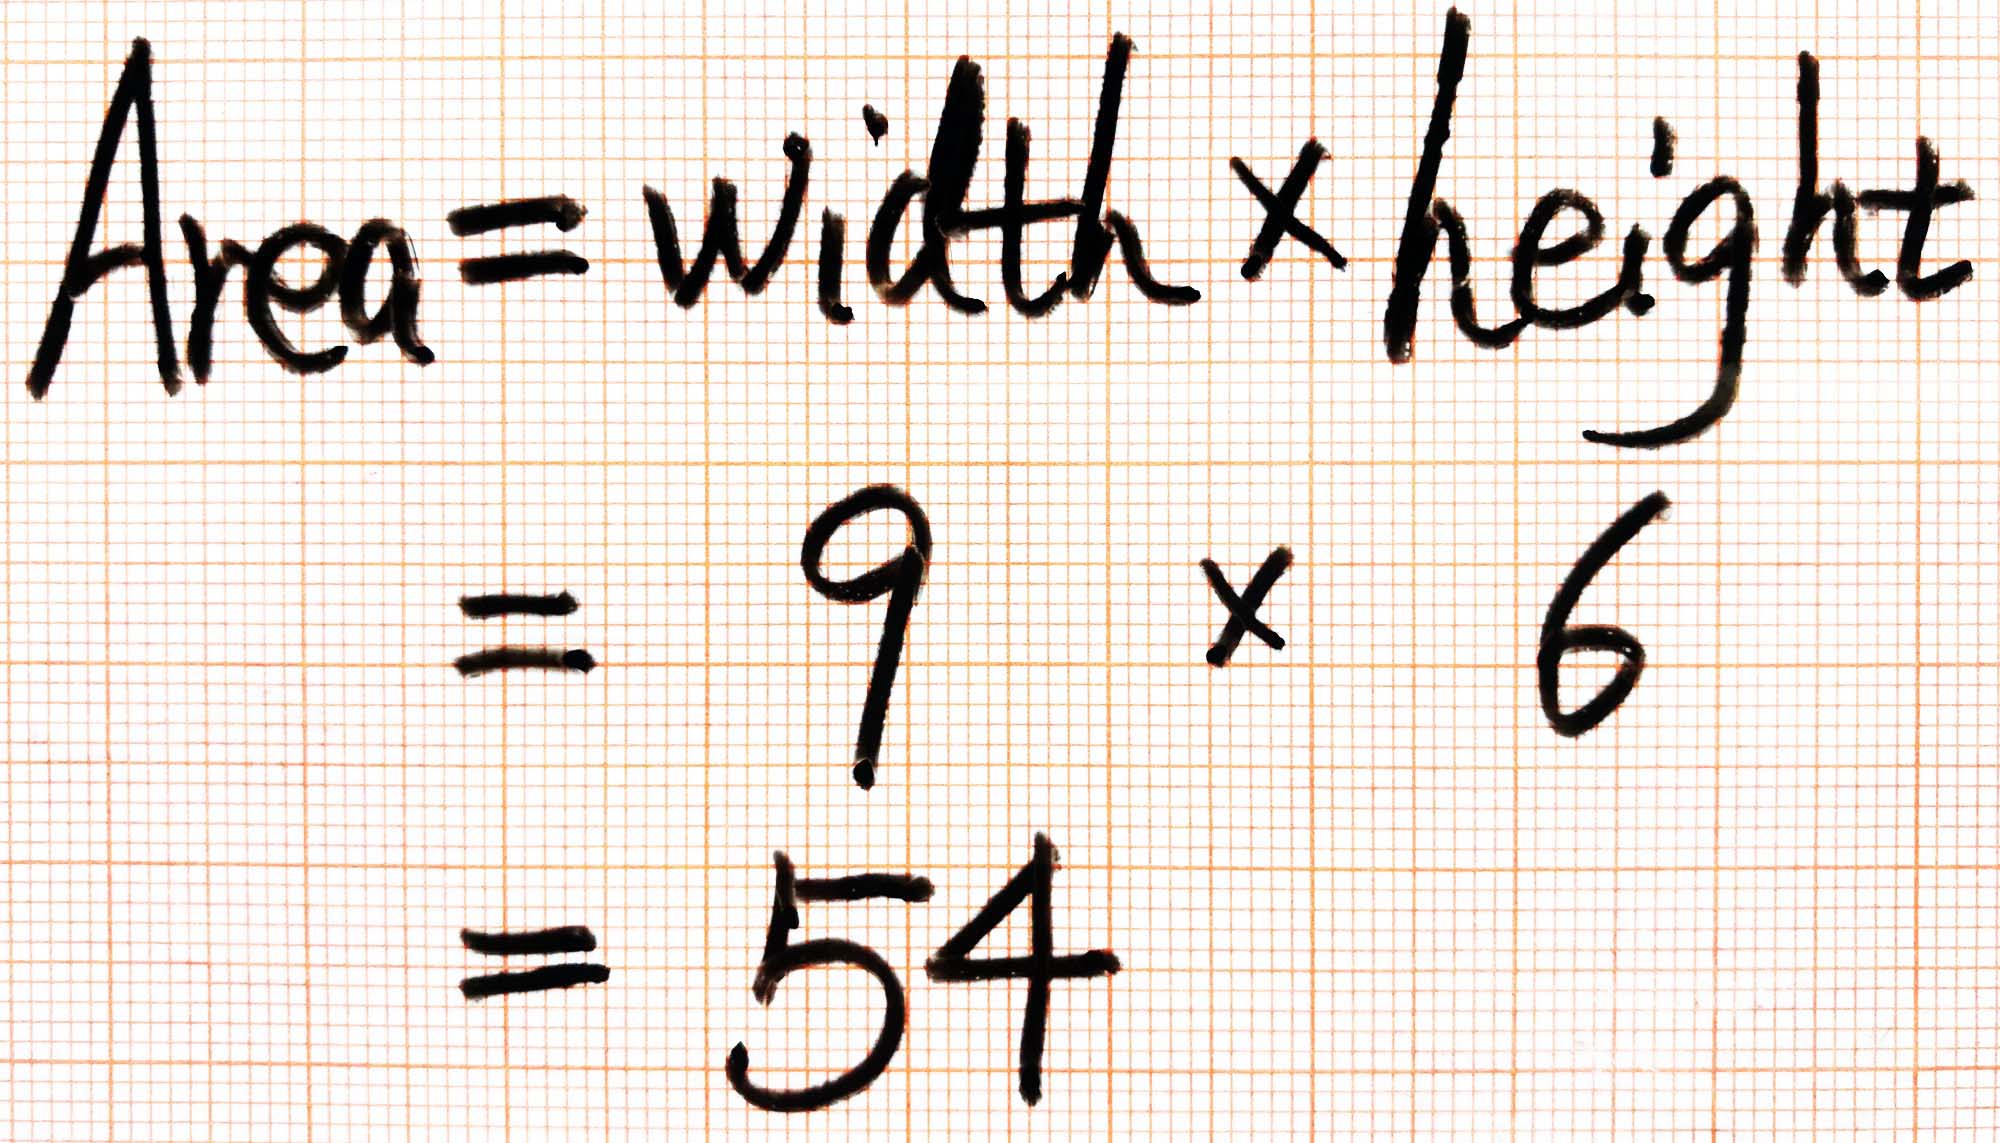 Area = width × height
= 9 × 6
= 54